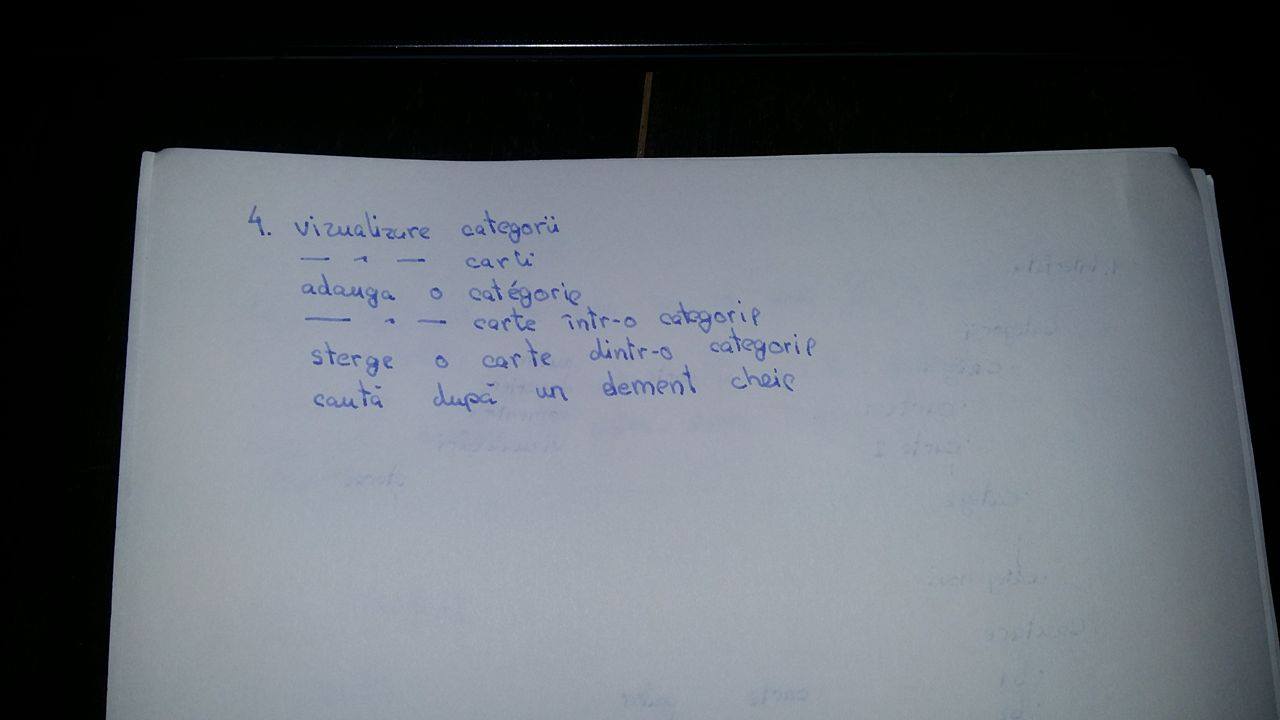 4. vizualizare categorii
— " — carti
adauga o categorie
— " — carte într-o categorie
sterge o carte dintr-o categorie
caută după un element cheie